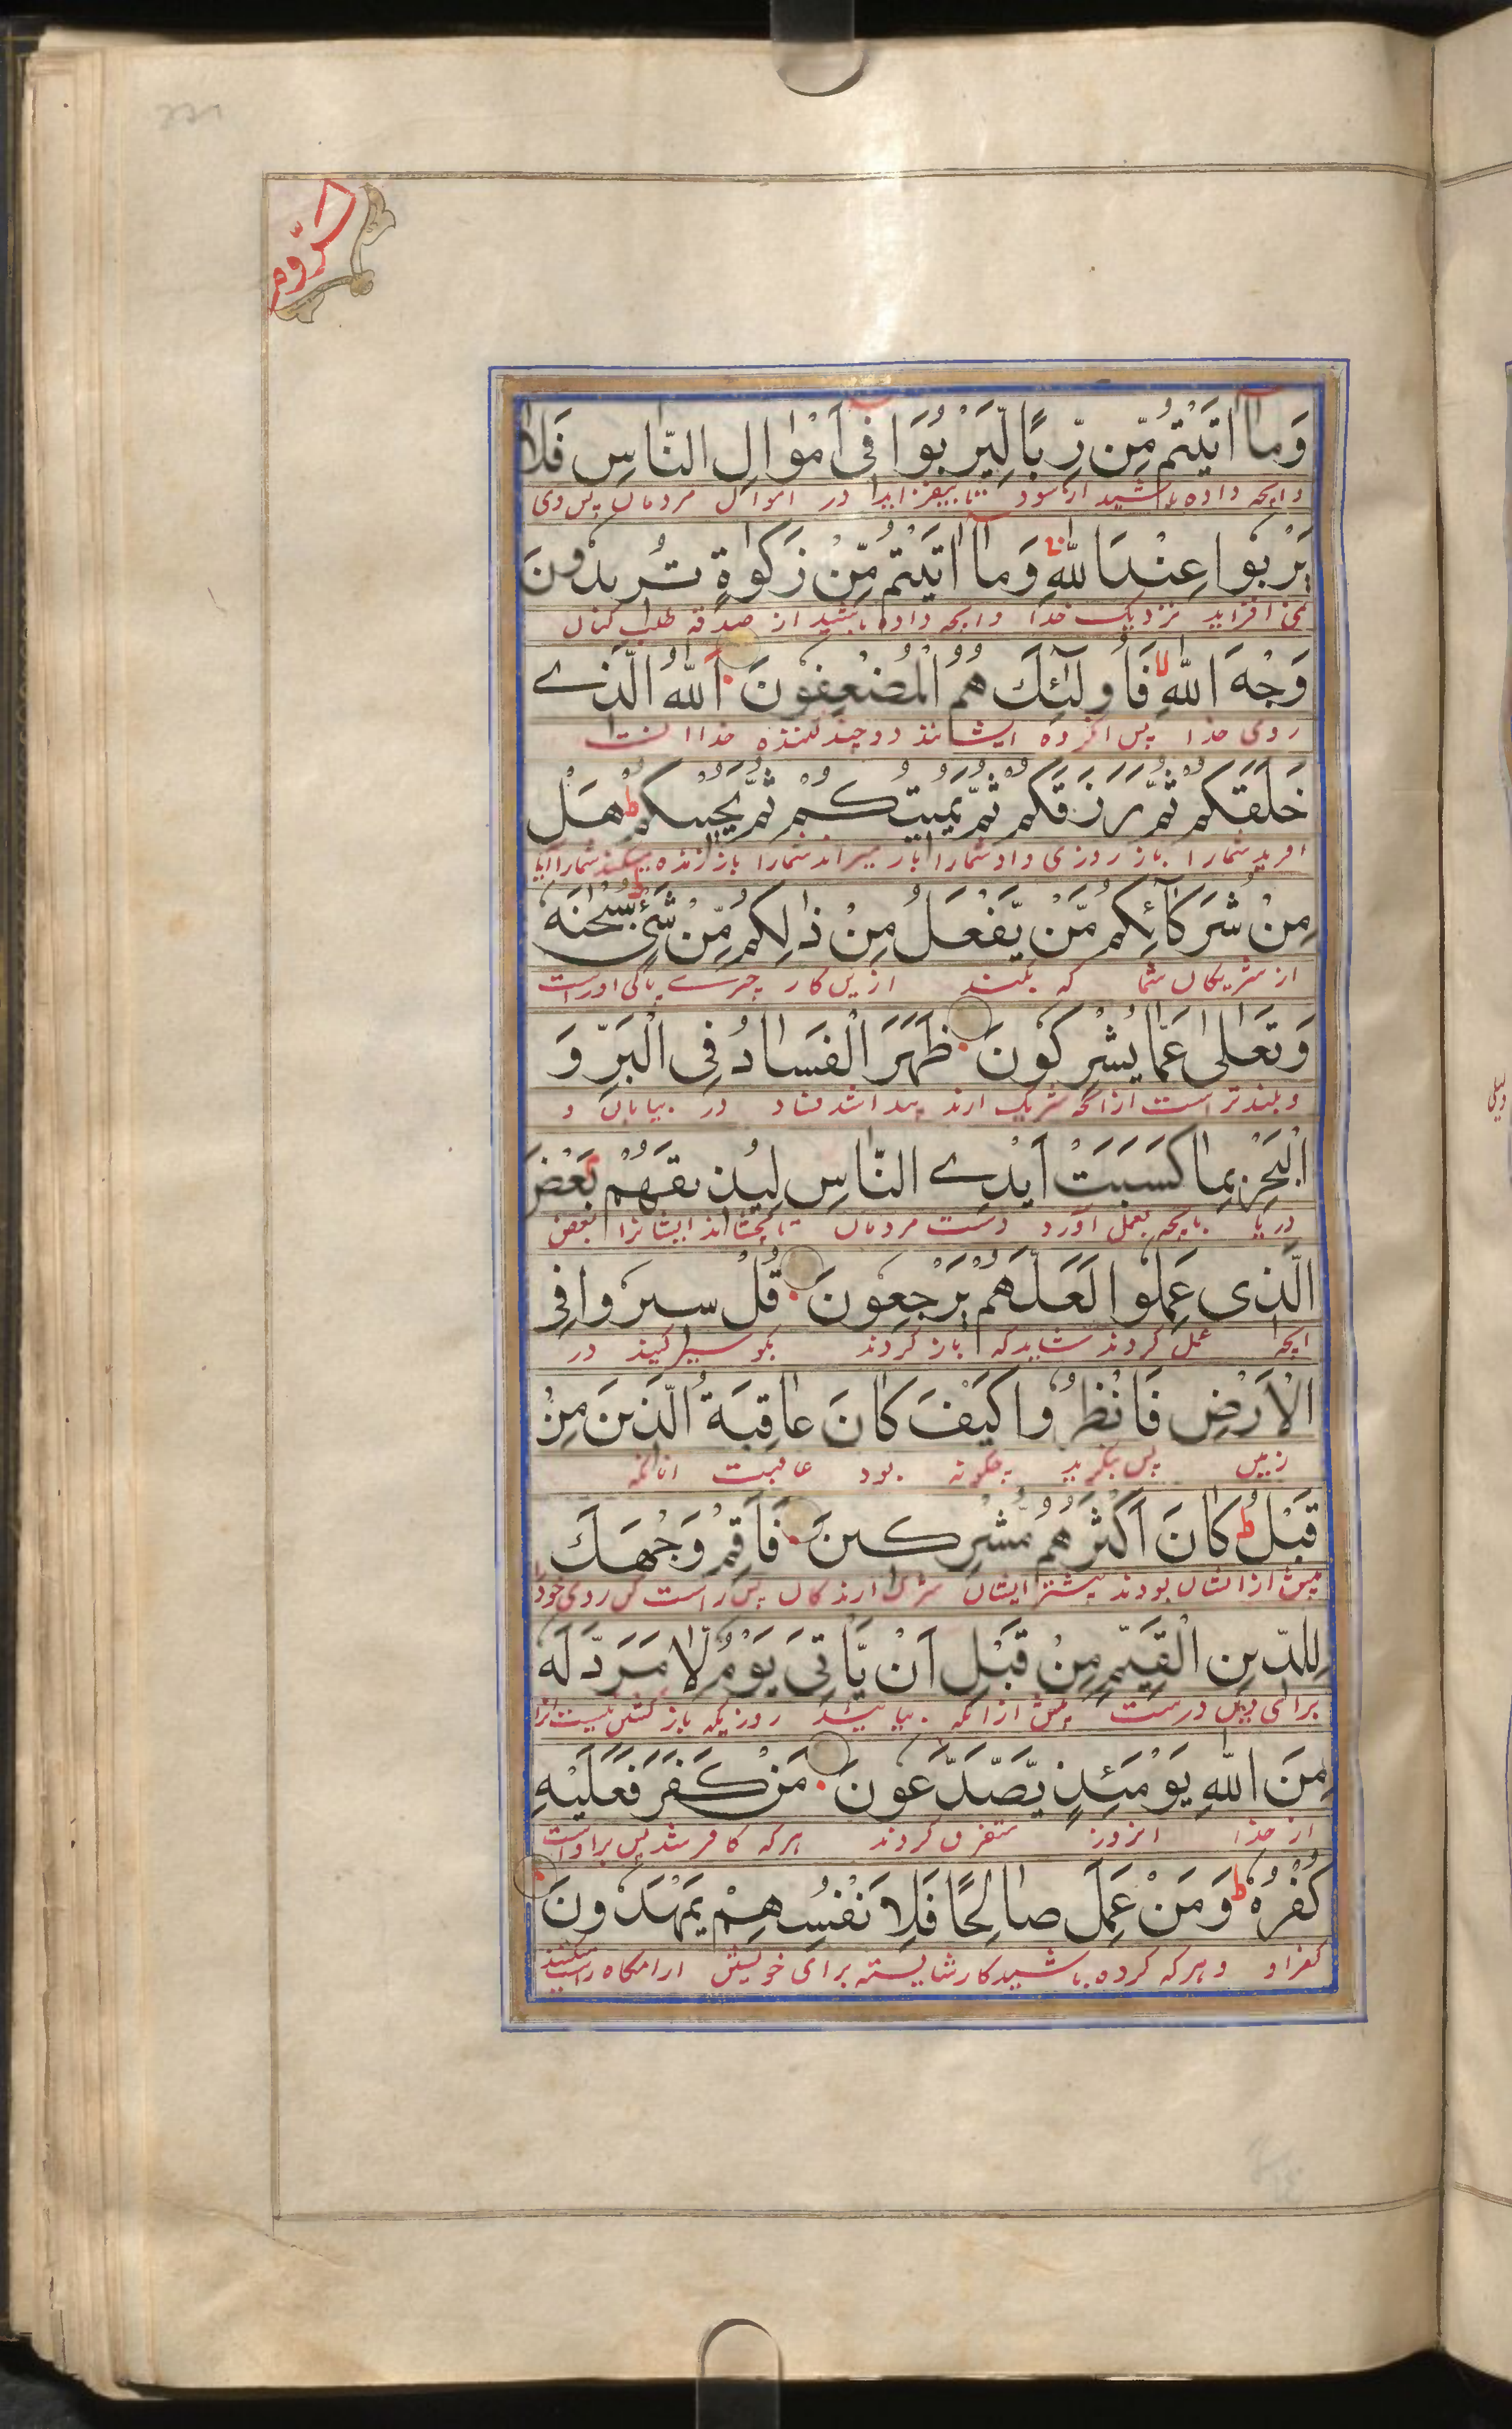 الروم
وَمَا اٰتَيْتُمْ مِّنْ رِّبًا لِّيَرْبُوَا فِیْ اَمْوَالِ النَّاسِ فَلَا
وانچه داده باشید از سود تا بیفزاید در اموال مردمان پس نمی
يَرْبُوا عِنْدَ اللّٰهِ وَمَا اٰتَيْتُمْ مِّنْ زَكٰوةٍ تُرِيْدُوْنَ
نمی افزاید نزدیک خدا وانچه داده باشید از صدقه طلب کنان
وَجْهَ اللّٰهِ فَاُولٰٓئِكَ هُمُ الْمُضْعِفُوْنَ اَللّٰهُ الَّذِے
روی خدا پس انگروه ایشانند دوچند کننده خدا انست
خَلَقَكُمْ ثُمَّ رَزَقَكُمْ ثُمَّ يُمِيْتُكُمْ ثُمَّ يُحْيِيْكُمْ ط هَلْ
افرید شمارا باز روزی داد شمارا باز میراند شمارا باز زنده میکند شمارا ایا
مِنْ شُرَكَآئِكُمْ مَّنْ يَّفْعَلُ مِنْ ذٰلِكُمْ مِّنْ شَیْءٍ سُبْحٰنَهٗ
از شریکان شما که بکند ازین کار چیزے پاکی اوراست
وَتَعٰلٰى عَمَّا يُشْرِكُوْنَ ظَهَرَ الْفَسَادُ فِی الْبَرِّ وَ
و بلندتر است ازانکه شریک ارند پیدا شد فساد در بیابان و
الْبَحْرِ بِمَا كَسَبَتْ اَيْدِے النَّاسِ لِيُذِيْقَهُمْ بَعْضَ
دریا بانچه بعمل اورد دست مردمان تا بچشاند ایشانرا بعض
الَّذِی عَمِلُوْا لَعَلَّهُمْ يَرْجِعُوْنَ قُلْ سِيْرُوْا فِی
انچه عمل کردند شاید که باز گردند بگو سیر کنید در
الْاَرْضِ فَانْظُرُوْا كَيْفَ كَانَ عَاقِبَةُ الَّذِيْنَ مِنْ
زمین پس بنگرید چگونه بود عاقبت انانکه
قَبْلُ ط كَانَ اَكْثَرُهُمْ مُّشْرِكِيْنَ فَاَقِمْ وَجْهَكَ
پیش از ایشان بودند بیشتر ایشان شرک ارندگان پس راست کن روی خود
لِلدِّيْنِ الْقَيِّمِ مِنْ قَبْلِ اَنْ يَّاْتِیَ يَوْمٌ لَّا مَرَدَّ لَهٗ
برای دین درست پیش ازانکه بیاید روزیکه باز گشتن نیست انرا
مِنَ اللّٰهِ يَوْمَئِذٍ يَّصَّدَّعُوْنَ مَنْ كَفَرَ فَعَلَيْهِ
از خدا انروز متفرق گردند هرکه کافر شد پس براوست
كُفْرُهٗ ط وَمَنْ عَمِلَ صَالِحًا فَلِاَنْفُسِهِمْ يَمْهَدُوْنَ
کفر او و هرکه کرده باشید کار شایسته برای خویش ارامگاه راست میکنند